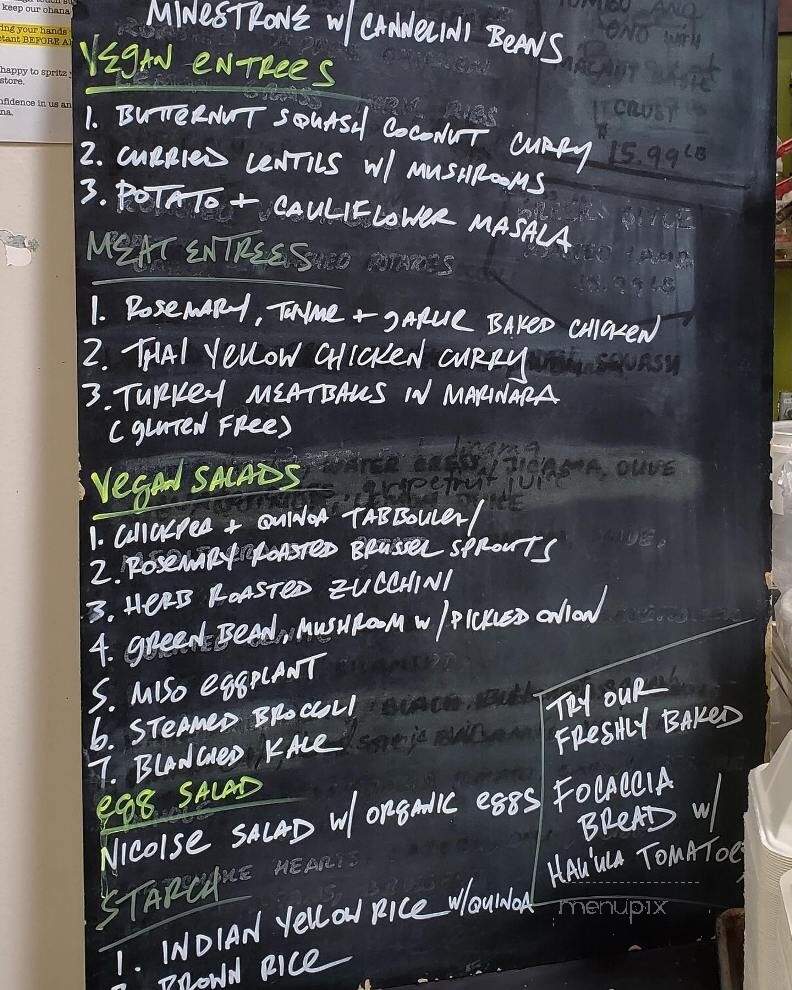 keep our ohana
ring your hands
tant BEFORE A
happy to spritz
store.
nfidence in us an
na.
MINESTRONE W/ CANNELINI BEANS
VEGAN ENTREES
1. BUTTERNUT SQUASH COCONUT CURRY
2. CURRIED LENTILS W/ MUSHROOMS
3. POTATO + CAULIFLOWER MASALA
MEAT ENTREES
1. ROSEMARY, THYME + GARLIC BAKED CHICKEN
2. THAI YELLOW CHICKEN CURRY
3. TURKEY MEATBALLS IN MARINARA
(GLUTEN FREE)
VEGAN SALADS
1. CHICKPEA + QUINOA TABBOULEH
2. ROSEMARY ROASTED BRUSSEL SPROUTS
3. HERB ROASTED ZUCCHINI
4. GREEN BEAN, MUSHROOM W/ PICKLED ONION
5. MISO EGGPLANT
6. STEAMED BROCCOLI
7. BLANCHED KALE
EGG SALAD
NICOISE SALAD W/ ORGANIC EGGS
STARCH
1. INDIAN YELLOW RICE W/QUINOA
2. BROWN RICE
TRY OUR
FRESHLY BAKED
FOCACCIA
BREAD W/
HAU'ULA TOMATOE
menupix
CRUST
15.99 LB
WATER CRESS, JICAMA, OLIVE
grapefruit juice